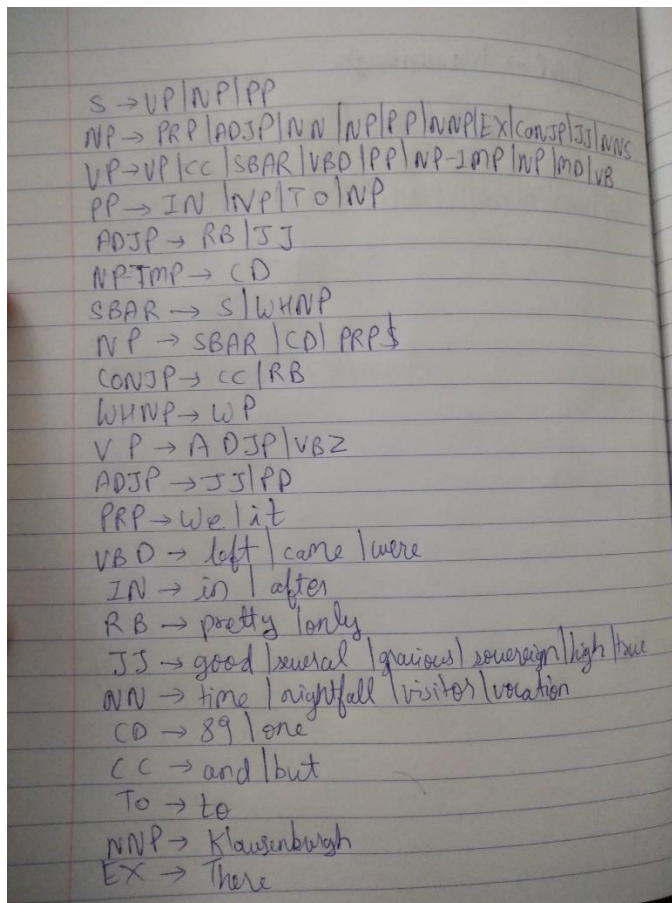 S → VP|NP|PP
NP → PRP|ADJP|NN|NP|PP|NNP|EX|CONJP|JJ|NNS
VP → VP|CC|SBAR|VBD|PP|NP-IMP|NP|MD|VB
PP → IN|NP|TO|NP
ADJP → RB|JJ
NP-IMP → CD
SBAR → S|WHNP
NP → SBAR|CD|PRP$
CONJP → CC|RB
WHNP → WP
VP → ADJP|VBZ
ADJP → JJ|PP
PRP → We|it
VBD → left|came|were
IN → in|after
RB → pretty|only
JJ → good|several|gracious|sovereign|high|true
NN → time|nightfall|visitor|vocation
CD → 89|one
CC → and|but
To → to
NNP → Klausenburgh
EX → There